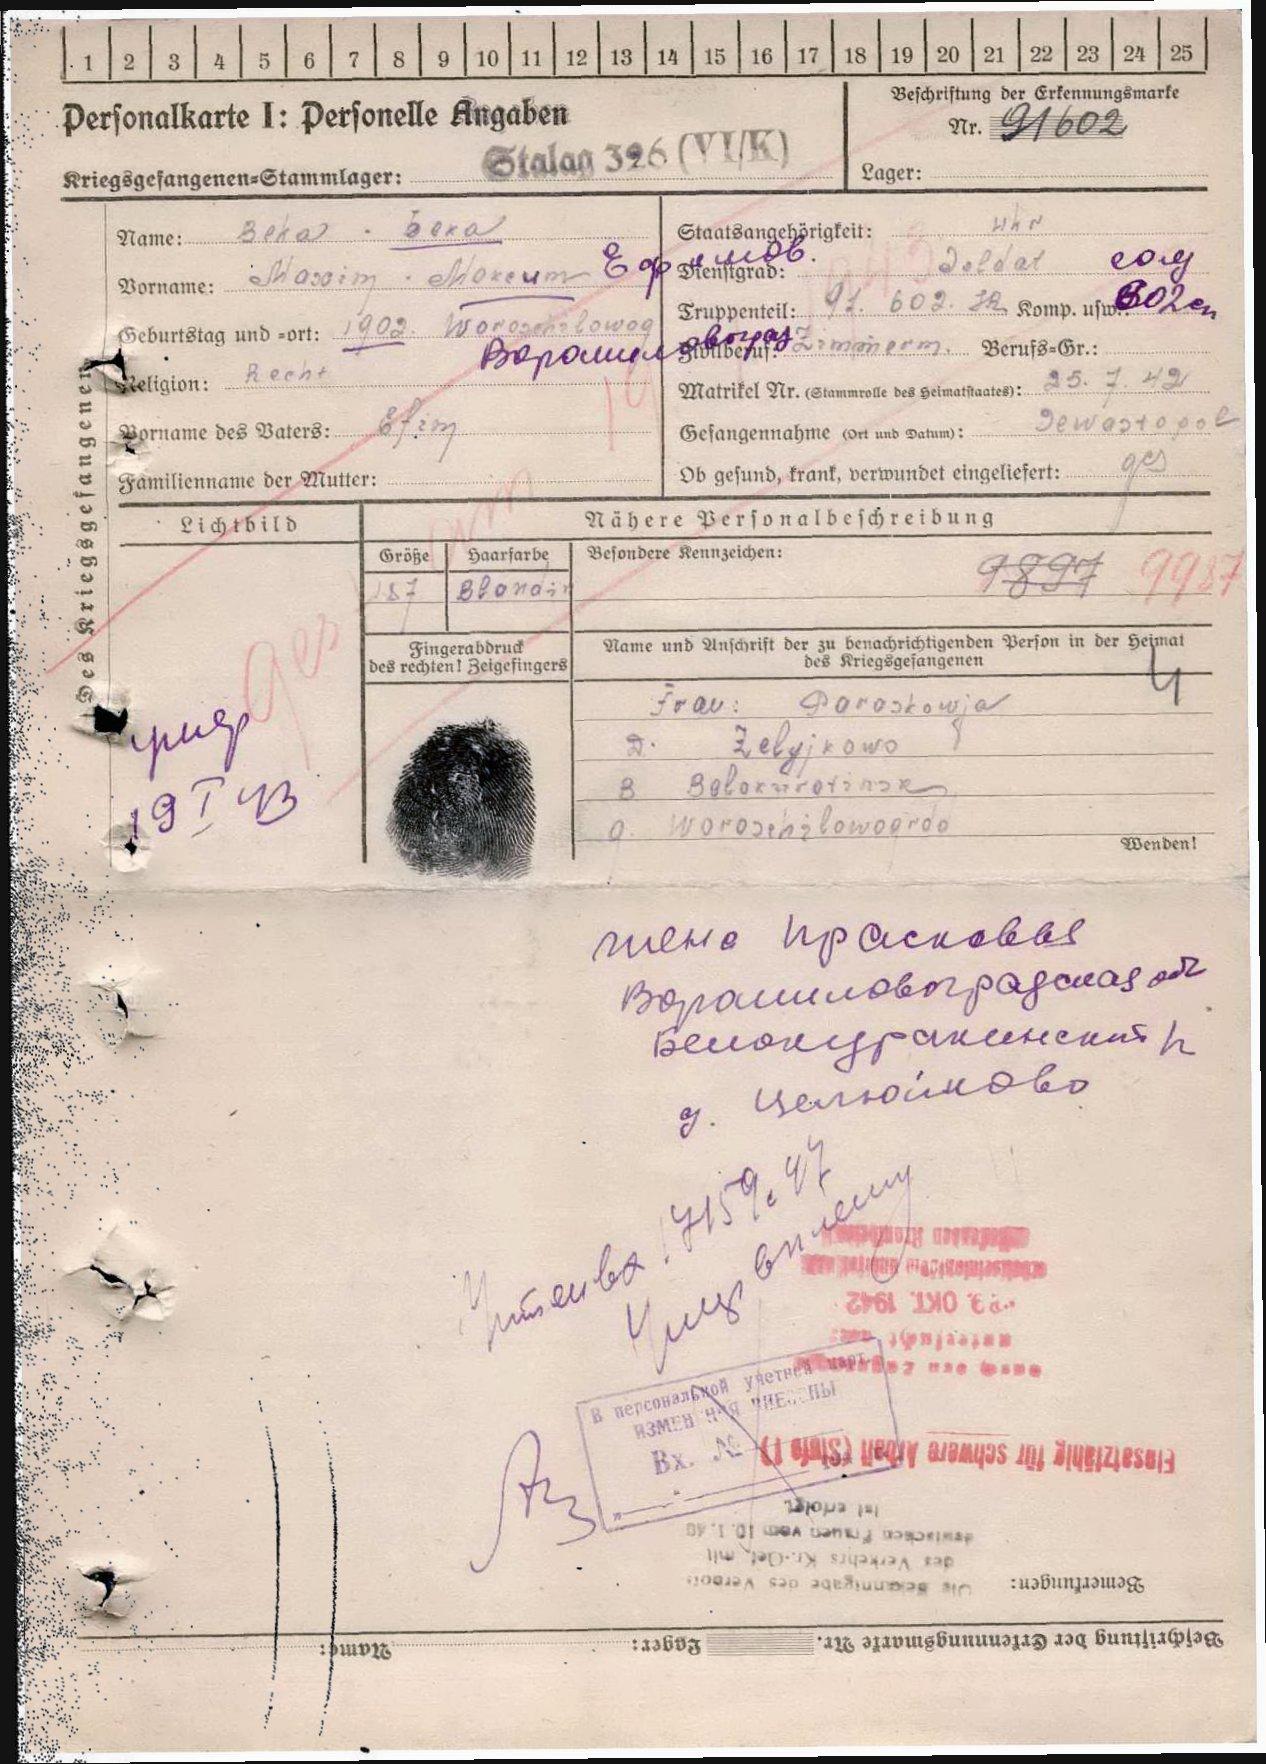 1 2 3 4 5 6 7 8 9 10 11 12 13 14 15 16 17 18 19 20 21 22 23 24 25
Personalkarte I: Personelle Angaben
Beschriftung der Erkennungsmarke
Nr. 91602
Stalag 326 (VI/K)
Kriegsgefangenen=Stammlager:
Lager:
Des Kriegsgefangenen
Name: Beka Бека
Staatsangehörigkeit: Ukr
Vorname: Maxim Максим Ефимов.
Dienstgrad: Soldat сол
Truppenteil: 91. 602. Komp. usw.: 602
Geburtstag und =ort: 1902. Woroschilowog
Ворошиловоград
Zivilberuf: Zimmerm. Berufs=Gr.:
Religion: Recht
Matrikel Nr. (Stammrolle des Heimatstaates): 25. 7. 42
Vorname des Vaters: Efim
Gefangennahme (Ort und Datum): Sewastopol
Familienname der Mutter:
Ob gesund, krank, verwundet eingeliefert: ges
Lichtbild
Nähere Personalbeschreibung
Größe Haarfarbe Besondere Kennzeichen:
187 Blondin
9897 9987
Fingerabdruck
des rechten! Zeigefingers
Name und Anschrift der zu benachrichtigenden Person in der Heimat
des Kriegsgefangenen
Frau: Paraskowja
D. Zelyjkowo
B Belokurotinsk
g. Woroschilowogrda
Wenden!
умер
19 I 43
жена Прасковья
Ворошиловоградская об
Белокуракинский р
д. Целюйково
В персональной учетной карт.
ИЗМЕНЕНИЯ ВНЕСЕНЫ
Вх. №
23. OKT. 1942
untersucht
Einsatzfähig für schwere Arbeit (Stufe I)
ist erfolgt.
deutschen Frauen vom 10.1.40
des Verkehrs Kr.-Gef. mit
Die Bekanntgabe des Verbots
Bemerkungen:
Name: Lager: Beschriftung der Erkennungsmarke Nr.